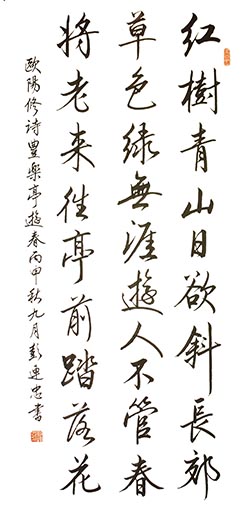 红樹青山日欲斜長郊
草色绿無涯遊人不管春
将老来往亭前踏落花
歐陽修诗豊樂亭遊春丙申秋九月彭連忠書